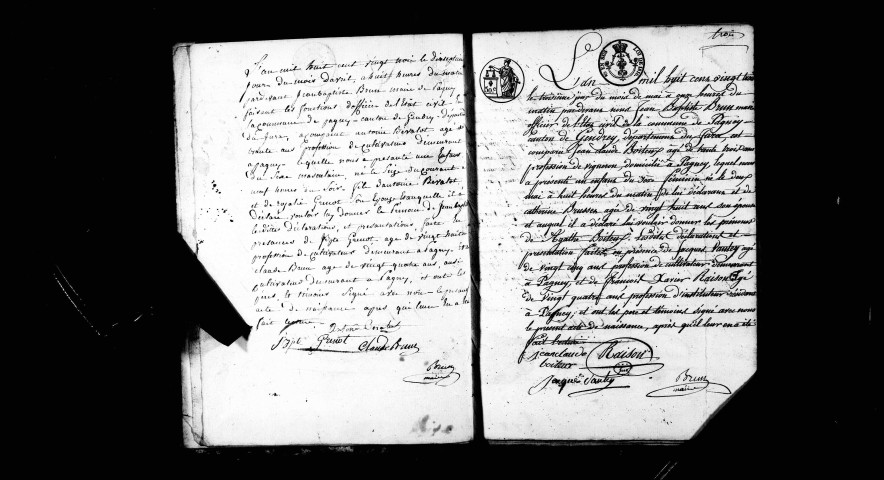 L'an mil huit cent vingt trois le dixseptieme
jour du mois d'avril, a huit heures du matin
pardevant Jean baptiste Brun maire de Pagney
faisant les fonctions d'officier de l'état civil de
la commune de pagney canton de Gendrey, departement
du Jura, a comparu antoine Bévalot, age de
trente ans profession de cultivateur demeurant
a pagney lequel nous a presenté un enfant
du Sexe masculin, né le Seize du courant a
neuf heures du Soir, fils d'antoine Bévalot
et de Guenot Son Epouse auquel il a
déclaré vouloir lui donner le Prénom de
lesdites déclarations, et presentations, faites en
presences de Guenot, age de vingt huit ans
profession de cultivateur demeurant a Pagney, et de
claude Brun age de vingt quatre ans, aussi
cultivateur demeurant a Pagney, et ont les
pere, et temoins Signé avec nous le present
acte de naissance, apres que lecture leur a été
fait lecture
Guenot Claude Brun
Brun
maire
trois
L'an mil huit cent vingt trois
le troisième jour du mois de mai à onze heures du
matin pardevant nous Jean Baptiste Brun maire
officier de l'état civil de la commune de Pagney
Canton de Gendrey, département du Jura est
comparu Jean claude Boiteux agé de trente trois ans
profession de vigneron domicilié à Pagney, lequel nous
a présenté un enfant du sexe féminin né le deux
mai à huit heures du matin, de lui déclarant et de
catherine agée de vingt huit ans son épouse
et auquel il a déclaré lui vouloir donner les prénoms
de Agathe Boiteux. Lesdites déclarations et
présentation faites en présence de Jacques Sauley agé
de vingt cinq ans profession de cultivateur demeurant
à Pagney, et de francois Xavier Raison agé
de vingt quatre ans profession d'instituteur
à Pagney; et ont les père et témoins signé avec nous
le présent acte de naissance, après qu'il leur en a été
fait lecture.
jean claude Raison
boiteux
jacques Sauley Brun
maire